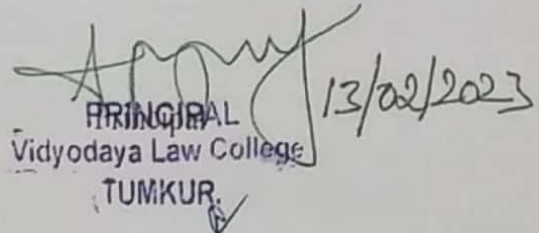 13/02/2023
PRINCIPAL
Vidyodaya Law College
TUMKUR.